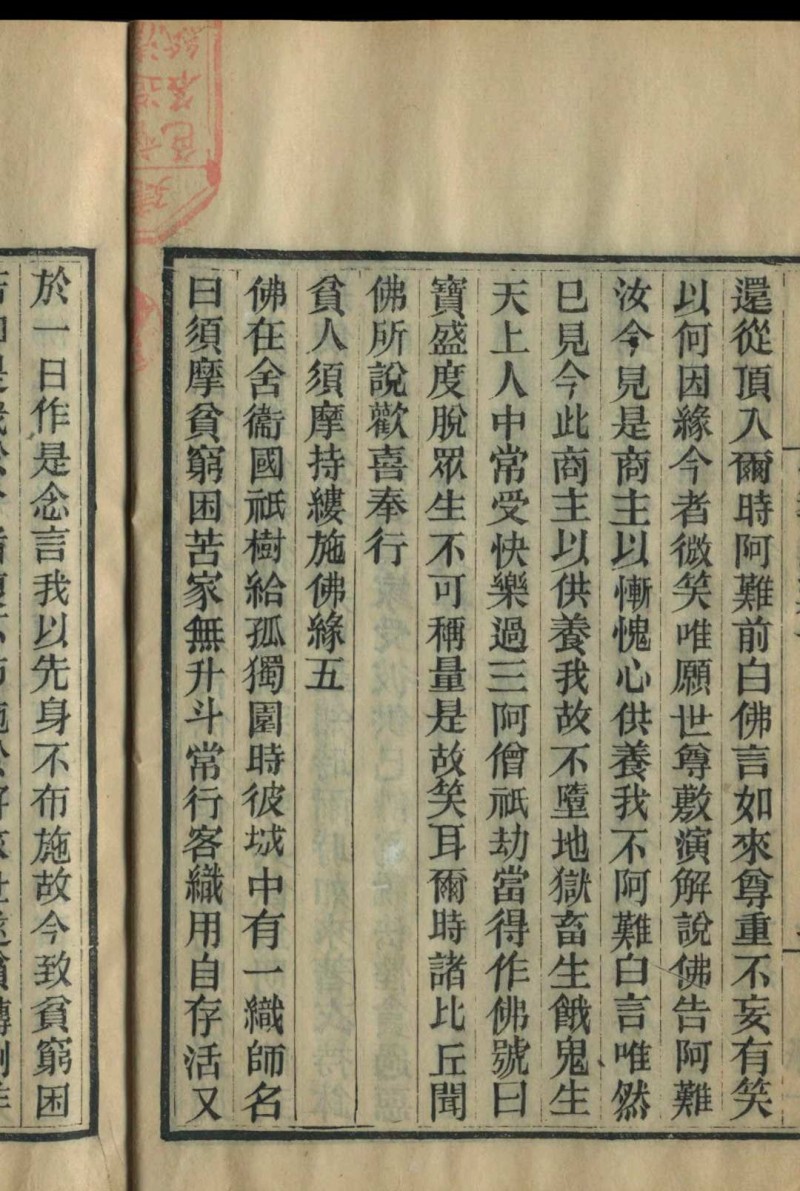 還從頂入爾時阿難前白佛言如來尊重不妄有笑
以何因緣今者微笑唯願世尊敷演解說佛告阿難
汝今見是商主以慚愧心供養我不阿難白言唯然
已見今此商主以供養我故不墮地獄畜生餓鬼生
天上人中常受快樂過三阿僧祇劫當得作佛號曰
寶盛度脫眾生不可稱量是故笑耳爾時諸比丘聞
佛所說歡喜奉行
貧人須摩持縷施佛緣五
佛在舍衞國祇樹給孤獨園時彼城中有一織師名
曰須摩貧窮困苦家無升斗常行客織用自存活又
於一日作是念言我以先身不布施故今致貧窮困